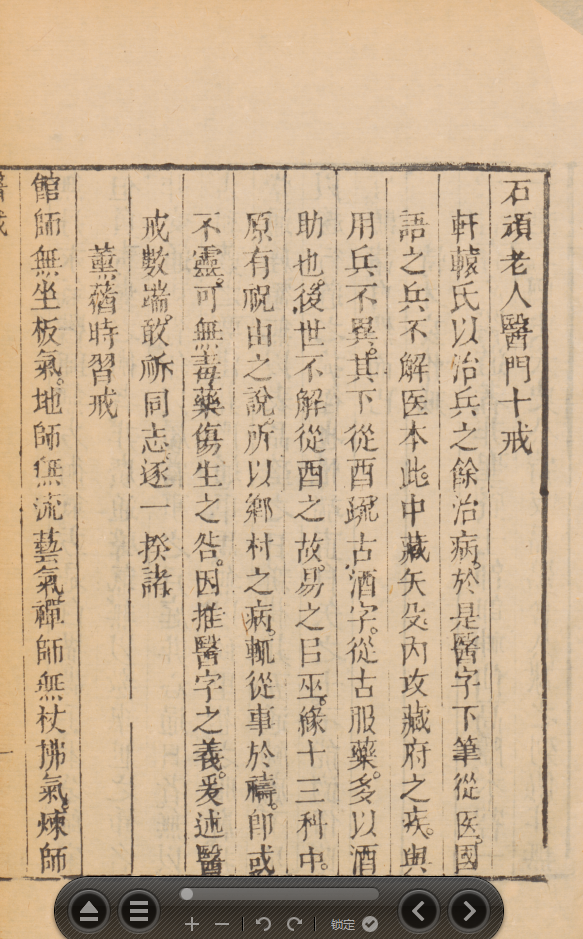 石頑老人醫門十戒
軒轅氏以治兵之餘治病。於是醫字下筆從医。國
語之兵不解医本此。中藏矢殳。內攻藏府之疾。與
用兵不異。其下從酉。疏古酒字。從古服藥。多以酒
助也。後世不解從酉之故。易之巨巫。緣十三科中。
原有祝由之說。所以鄉村之病。輒從事於禱。即或
不靈。可無毒藥傷生之咎。因推醫字之義。爰述醫
戒數端。敢訴同志。逐一揆諸。
薰蕕時習戒
館師無坐板氣。地師無流藝氣。禪師無杖拂氣。煉師
醫戒
一
鎖定